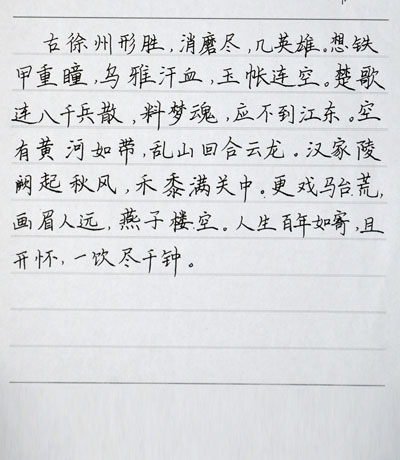 古徐州形胜,消磨尽,几英雄。想铁
甲重瞳,乌雅汗血,玉帐连空。楚歌
连八千兵散,料梦魂,应不到江东。空
有黄河如带,乱山回合云龙。汉家陵
阙起秋风,禾黍满关中。更戏马台荒,
画眉人远,燕子楼空。人生百年如寄,且
开怀,一饮尽千钟。